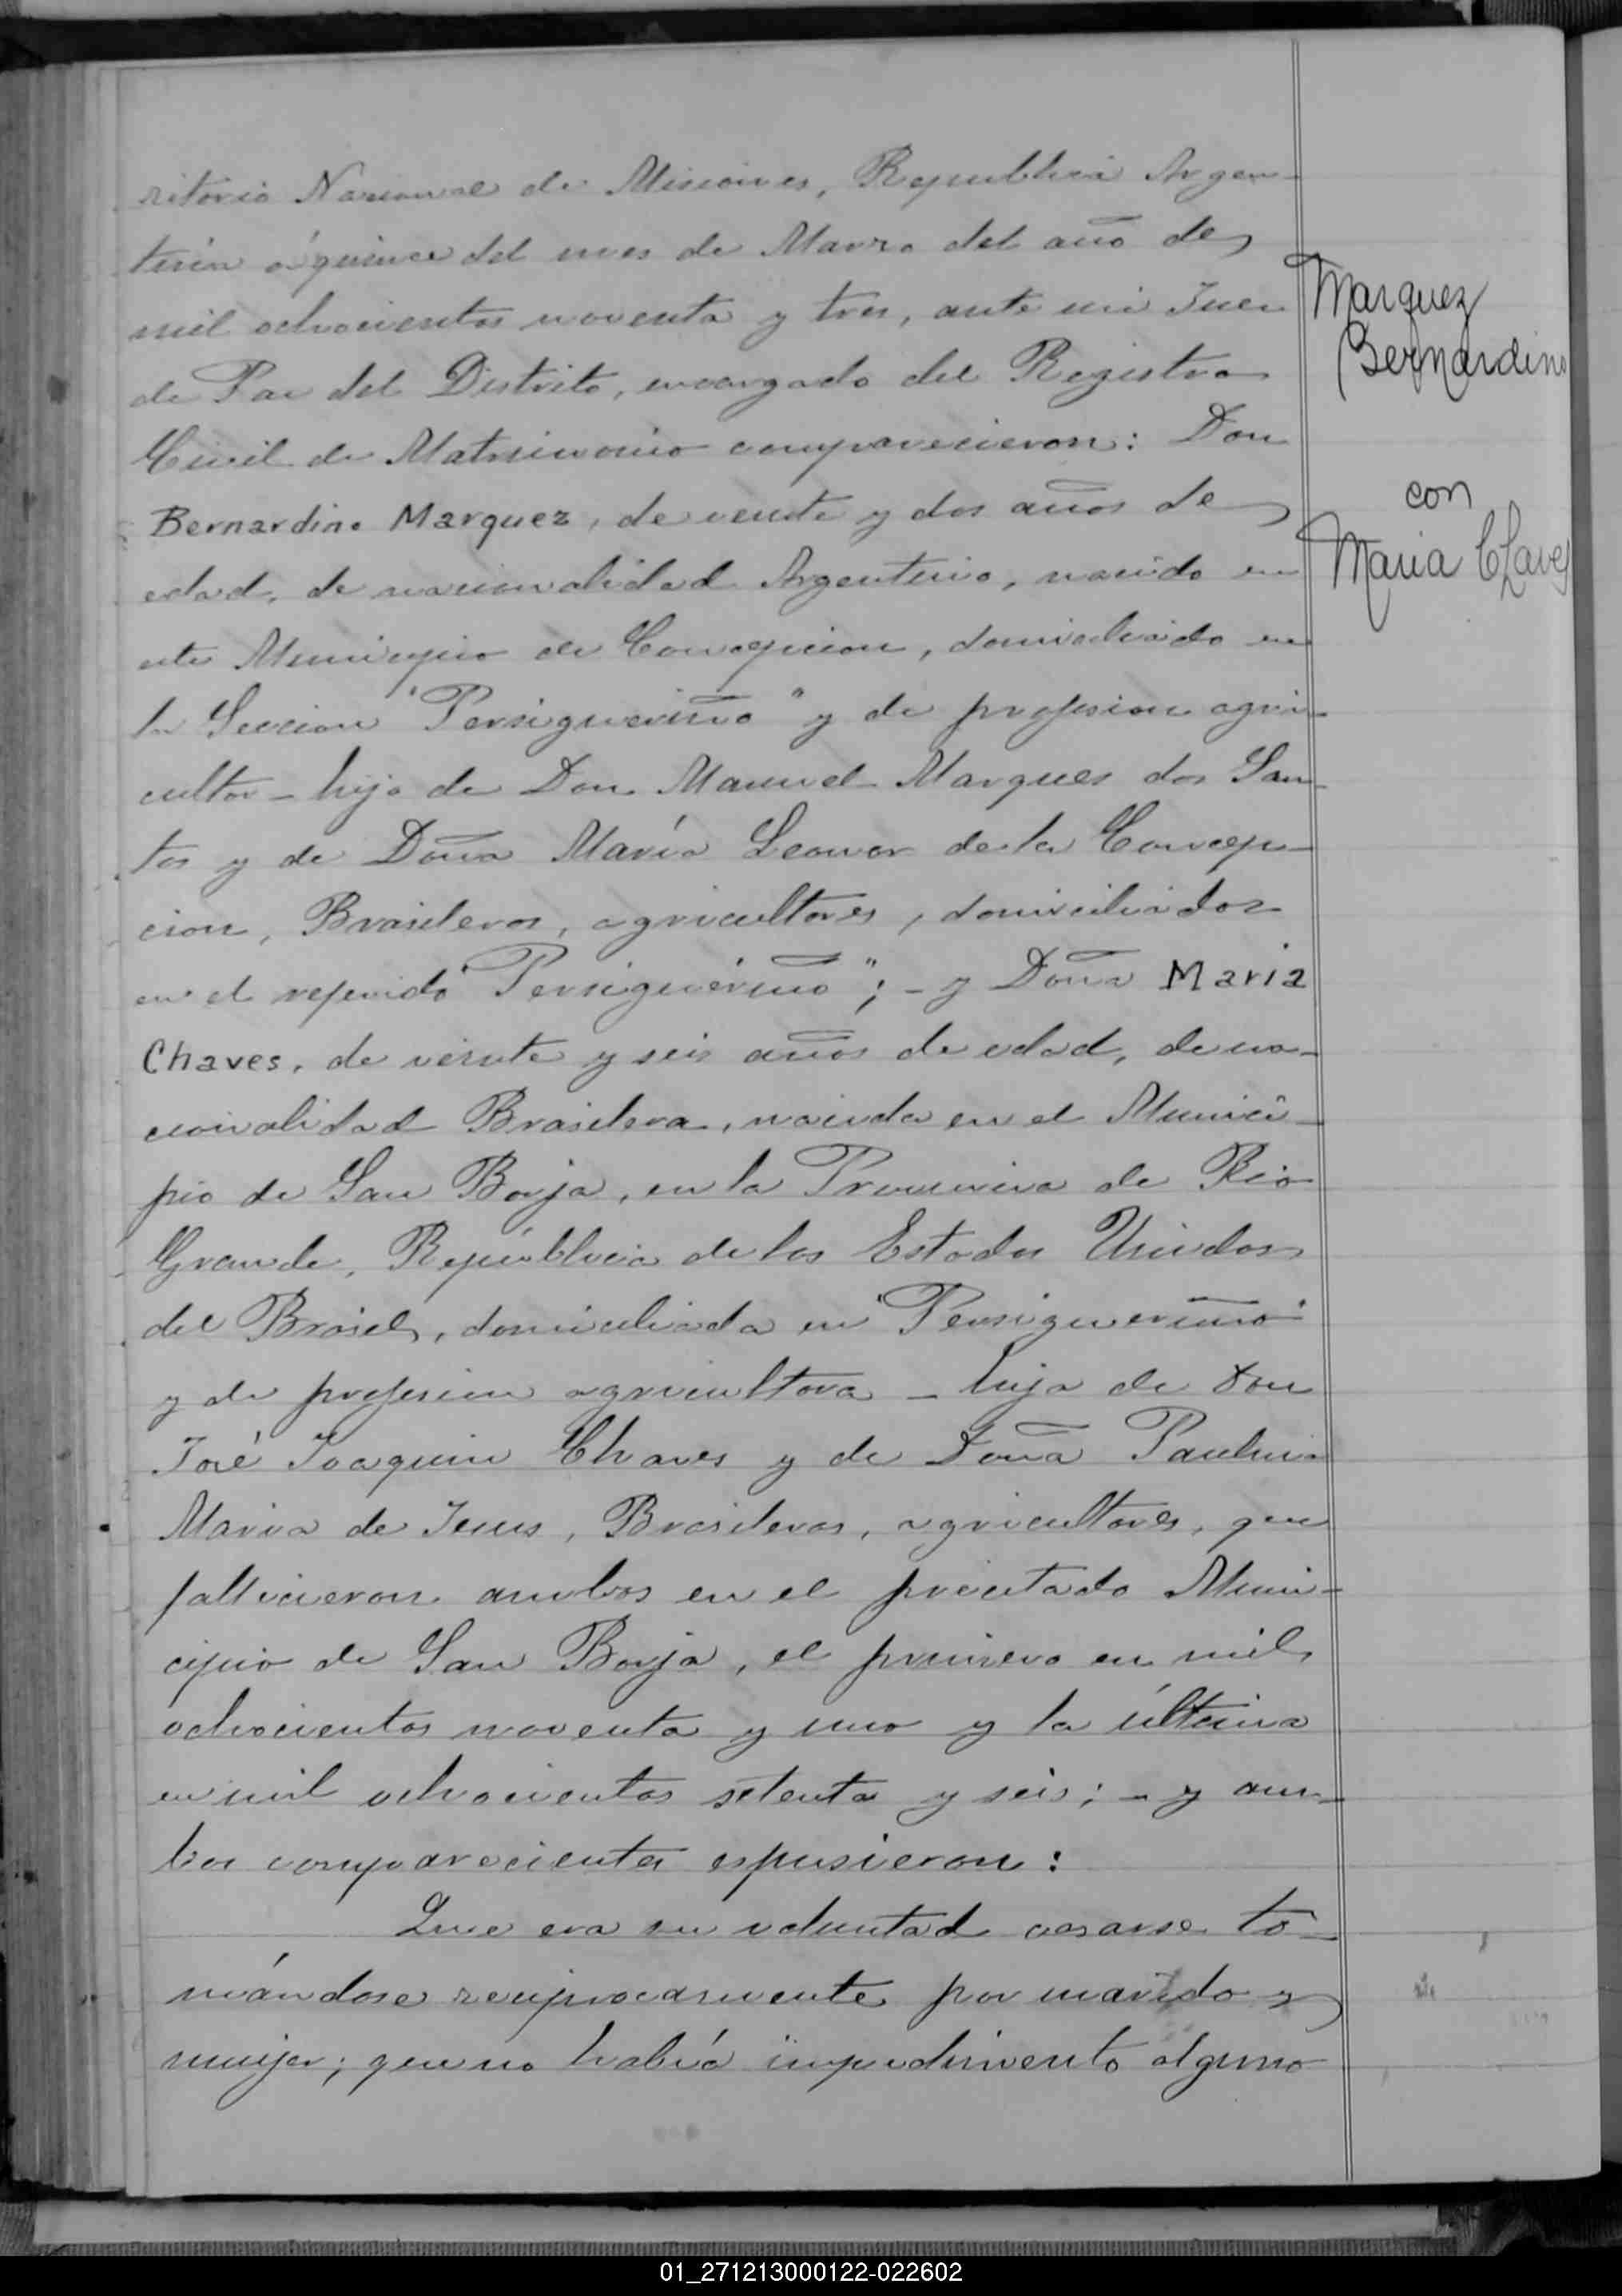 ritorio Nacional de Misiones, Republica Argen-
tina á quince del mes de Marzo del año de
mil ochocientos noventa y tres, ante mi Juez
de Paz del Distrito, encargado del Registro
Civil de Matrimonio comparecieron: Don
Bernardino Marquez, de veinte y dos años de
edad, de nacionalidad Argentino, nacido en
este Municipio de Concepcion, domiciliado en
la Seccion "Persigueriño" y de profesion agri-
cultor - hijo de Don Manuel Marques dos San-
tos y de Doña María Leonor de la Concep-
cion, Brasileros, agricultores, domiciliados
en el referido "Persiguériño"; - y Doña Maria
Chaves, de veinte y seis años de edad, de na-
cionalidad Brasilera, nacida en el Munici-
pio de San Borja, en la Provincia de Rio
Grande, República de los Estados Unidos
del Brasil, domiciliada en "Persigueriño"
y de profesion agricultora - hija de Don
José Joaquin Chaves y de Doña Paulina
Maria de Jesus, Brasileros, agricultores, que
fallecieron ambos en el precitado Muni-
cipio de San Borja, el primero en mil
ochocientos noventa y uno y la última
en mil ochocientos setenta y seis; - y am-
bos comparecientes espusieron:
Que era su voluntad casarse to-
mándose reciprocamente por marido y
mujer; que no había impedimento alguno
Marquez
Bernardino
con
Maria Chaves
01_271213000122-022602